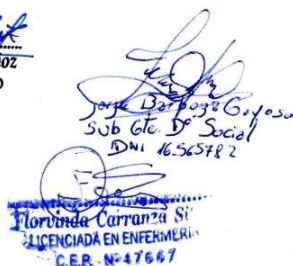 OZ
Jorge Barboza Gayoso
Sub Gte. Dº Social
DNI 16565782
Florvinda Carranza Si
LICENCIADA EN ENFERMERI
C.E.P. Nº 47667